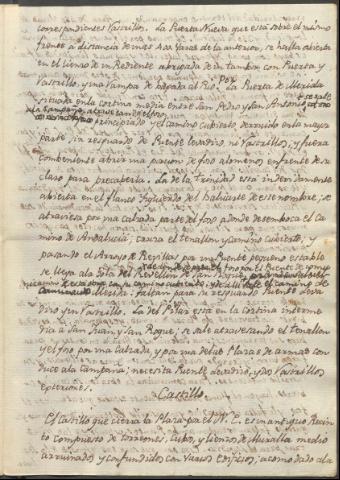 correspondientes Vastrillos. La Puerta Nueva que está sobre el mismo
frente a distancia de mas Varas de la anterior, se halla abierta
en el lienzo intermediente abrigada de un tambor con Puerta y
Vastrillo, y una rampa de bajada al Rio. La Puerta de Merida
situada en la cortina media entre San Pedro y San Antonio
principiado y el camino cubierto derruido en la mayor
parte, sin resguardo de Puente levadizo ni Vastrillos, y fuera
combeniente abrir una porcion de foso alomenos enfrente de su
claro para precaverla. La de la Trinidad está indevidamente
abierta en el flanco izquierdo del baluarte de ese nombre; se
atraviesa por una calzada parte del foso adonde desemboca el Ca
mino de Andalucia; cruza el tenallon y camino cubierto; y
pasando el Arroyo de Revillas por un Puente pequeño estable
se llega ala Gola del Revellin de San Roque
faltan para su resguardo Puente leva
dizo y un Vastrillo. La del Pilar está en la cortina interme
dia a San Juan y San Roque; se sale atravesando el Tenallon
y el foso por una Calzada, y por una de las Plazas de armas con
duce ala Campaña; necesita Puente levadizo, y dos Vastrillos
esteriores.
Castillo
El Castillo que cierra la Plaza por el N. E. es un antiguo Recin
to compuesto de torreones, Cubos, y lienzos de Muralla medio
arruinados y confundidos con varios Edificios, acomodado ala